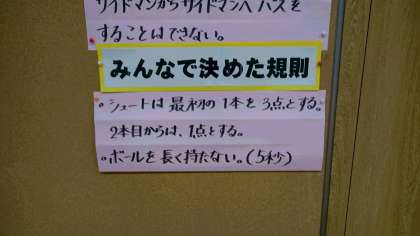 サイドマンからサイドマンへパスを
することはできない。
みんなで決めた規則
。シュートは最初の1本を3点とする。
2本目からは、1点とする。
。ボールを長く持たない。(5秒)